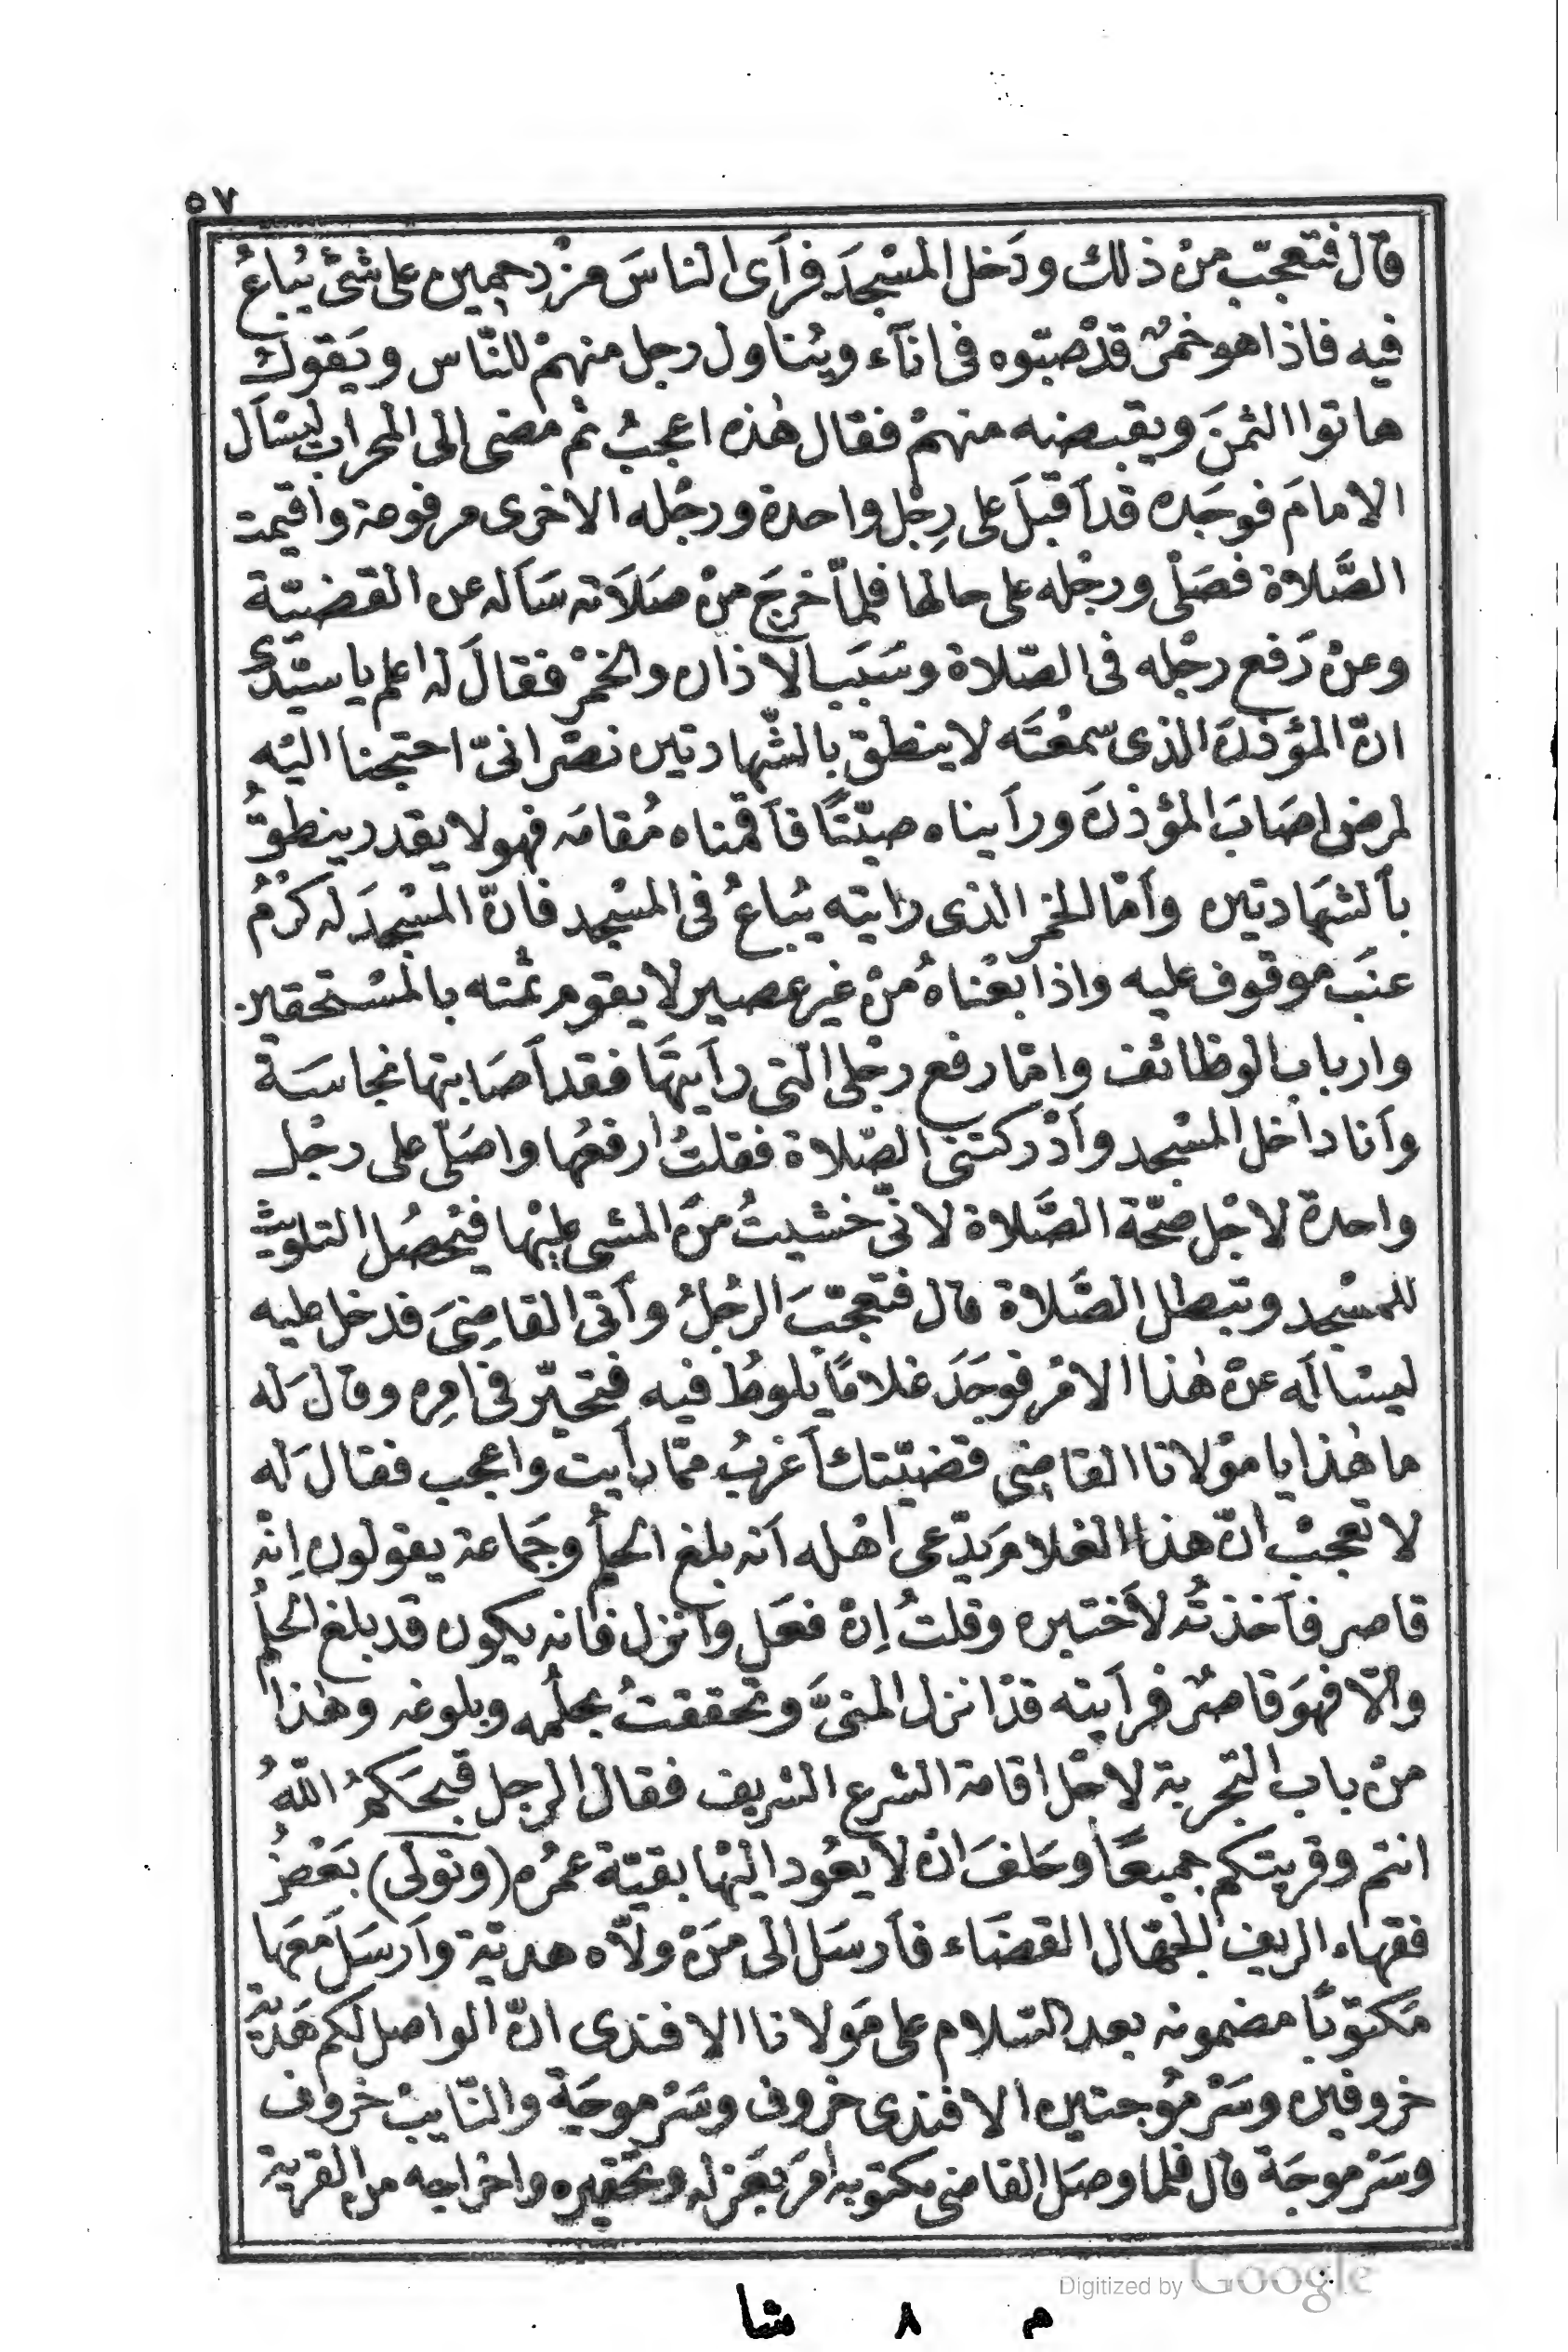 ٥٧
قال فتعجّب منْ ذلك ودَخل المسْجدَ فرآى الناسَ مزْدحمين على شئ يُباعُ
فيه فاذا هو خمرٌ قدْ صبّوه فى انآء ويُناول رجل منهمْ للنّاس ويَقول
هاتوا الثمنَ ويقبضه منهمْ فقال هٰذه اعجبُ ثم مضى الى المحراب ليسْأل
الامامَ فوجَده قد أقبَل على رِجْل واحدة ورجْله الاخرى مرفوعة واقيمت
الصَّلاة فصَلّى ورجْله على حالها فلمّا خرجَ منْ صَلَاته سَأله عن القضيّة
وعنْ رَفع رجْله فى الصّلاة وسَبَب الاذان والخمْر فقالَ له اعلم يا سيّدى
انّ المؤذنَ الذى سمعْتَه لا ينطق بالشّهادتين نصْرانىّ احتجنا اليْه
لمرض اصَابَ المؤذنَ ورأيناه صيّتًا فأقمناه مُقامَه فهو لا يقدر ينطقُ
بألشهَادتين وأمّا الخمر الذى رايته يُباعُ فى المسْجد فانّ المسْجدَ له كرْمُ
عنَب موقوف عليه واذا بعْناهُ منْ غير عصير لا يقوم ثمنه بالمسْتحقين
وارباب الوظائف وامّا رفع رجْلى الّتى رأيتهَا فقد أصَابتها نجاسَة
وأنا داخل المسْجد وأدْركتنى الصّلاة فقلتُ ارفعُها واصَلّى على رجْل
واحدة لاجْل صحّة الصَّلاة لانّى خشيتُ منَ المشى عليْها فيحْصُل التلويث
للمسْجد وتبطل الصَّلاة قال فتعجّبَ الرجُلُ وأتى القاضِىَ فدخل عليه
ليسْاله عنْ هٰذا الامْر فوجَدَ غلامًا يلوطُ فيه فتحيّر فى امره وقالَ لَه
ما هٰذا يا موْلانا القاضى قضيّتك أغربُ ممّا رأيت واعجب فقال لَه
لا تعجبْ انّ هذا الغلامَ يَدّعى اهْله أنه بلغ الحلمُ وجَماعة يقولون اِنّه
قاصر فأخذتُه لأختبره وقلتُ اِنْ فعَل وأنزل فانه يكون قد بلغ الحلُم
والّا فهوَ قاصرٌ فرأيته قدْ انزل المنىَّ وتحققتُ بحلُمه وبلوغه وهٰذا
منْ باب التّجربة لاجْل اقامة الشرع الشريف فقال الرجل قبحَكمُ اللهُ
انتم وقريتكم جميعًا وحَلفَ انْ لا يعُود اليْها بقيّة عمُره (وتولى) بَعْضُ
فقهاء الريف الجهّال القضَاء فأرسَل الى منْ ولّاه هديّة وأرسَلَ معَها
مَكتوبًا مضمونه بعد السّلام على مَولانا الافندى انّ الواصل لكم هَديّة
خروفين وسَرْموُجتين الافندى خروف وسَرْموجَة والنّايبْ خروف
وسَرْموجَة قال فلما وصَل القاضى مكتوبه امَر بعَزله وتحقيره واخراجه من القرية
م ٨ شا
Digitized by Google